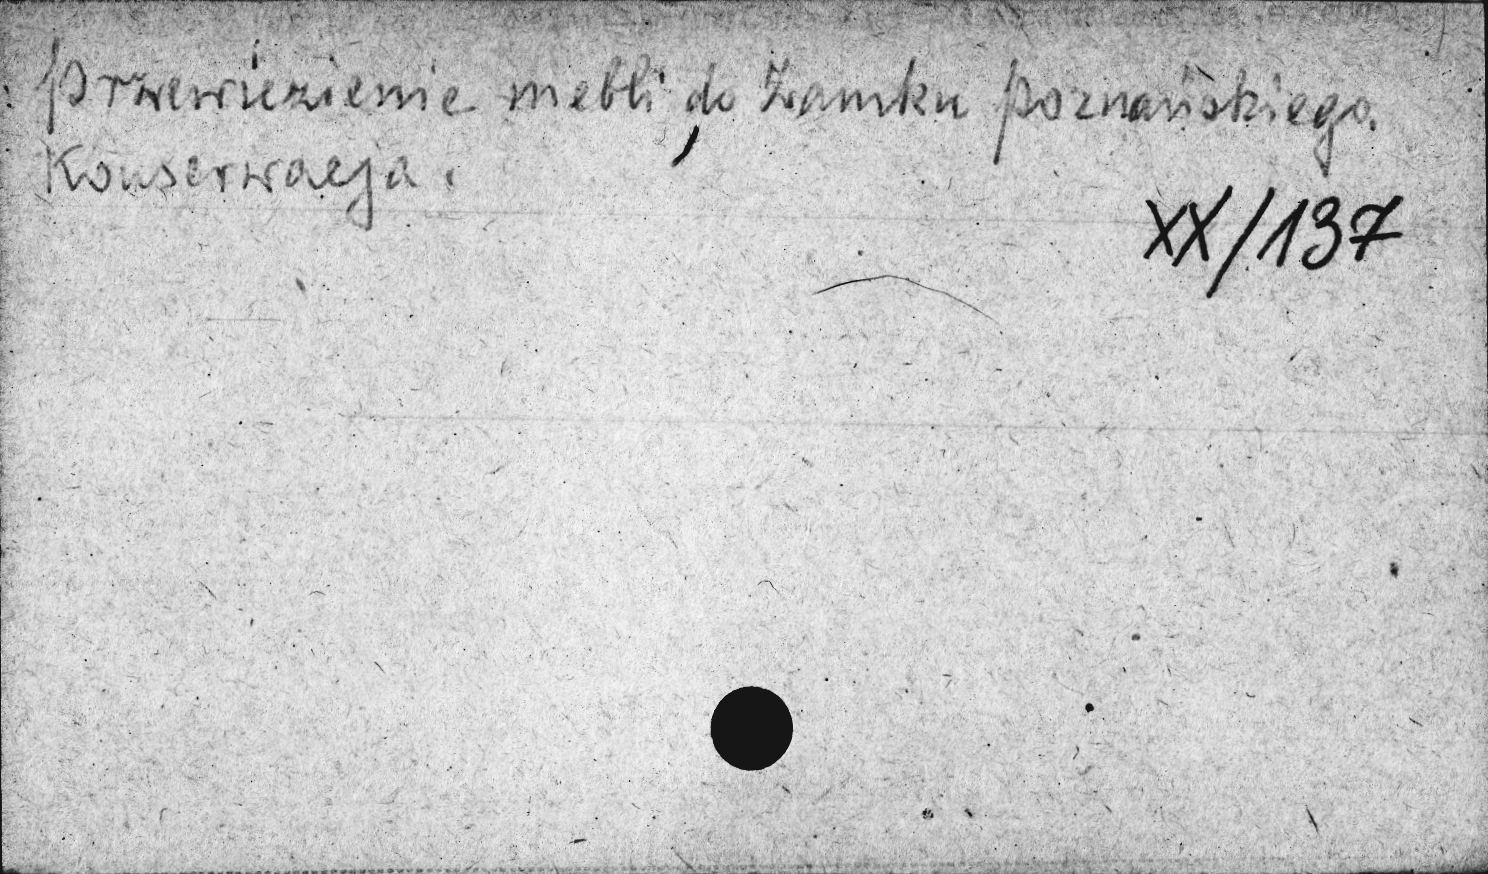 Przewiezienie mebli do Zamku poznańskiego.
Konserwacja.
XX/137